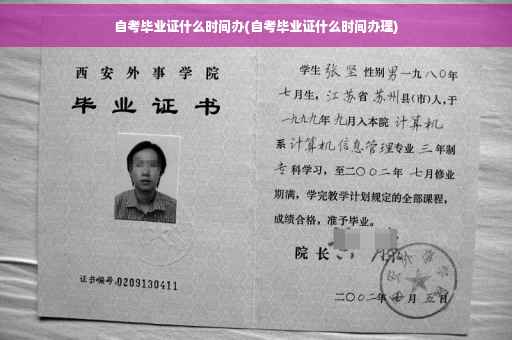 自考毕业证什么时间办(自考毕业证什么时间办理)
西安外事学院
毕业证书
证书编号:0209130411
学生张坚性别男一九八〇年
七月生,江苏省苏州县(市)人,于
一九九九年九月入本院计算机
系计算机信息管理专业三年制
专科学习,至二〇〇二年七月修业
期满,学完教学计划规定的全部课程,
成绩合格,准予毕业。
院长
二〇〇二年 月五日